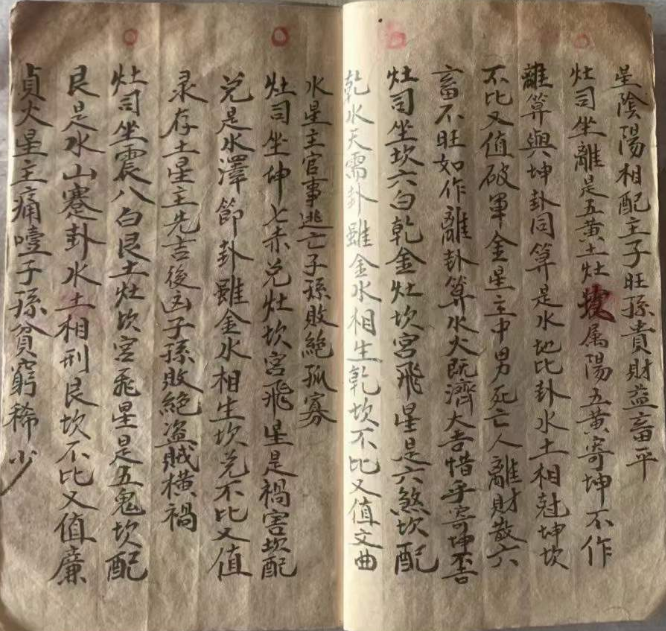 星陰陽相配主子旺孫貴財益畜平
灶司坐離是五黄土灶坎属陽五黄寄坤不作
離算與坤卦同算是水地比卦水土相尅坤坎
不比又值破軍金星主中男死亡人離財散六
畜不旺如作離卦算水火既濟大吉惜乎寄坤不吉
灶司坐坎六白乾金灶坎宮飛星是六煞坎配
乾水天需卦雖金水相生乾坎不比又值文曲
水星主官事逃亡子孫敗絕孤寡
灶司坐坤七赤兑灶坎宮飛星是禍害坎配
兑是水澤節卦雖金水相生坎兑不比又值
录存土星主先吉後凶子孫敗絕盗賊横禍
灶司坐震八白艮土灶坎宮飛星是五鬼坎配
艮是水山蹇卦水土相刑艮坎不比又值廉
貞火星主痛噎子孫貧窮稀少